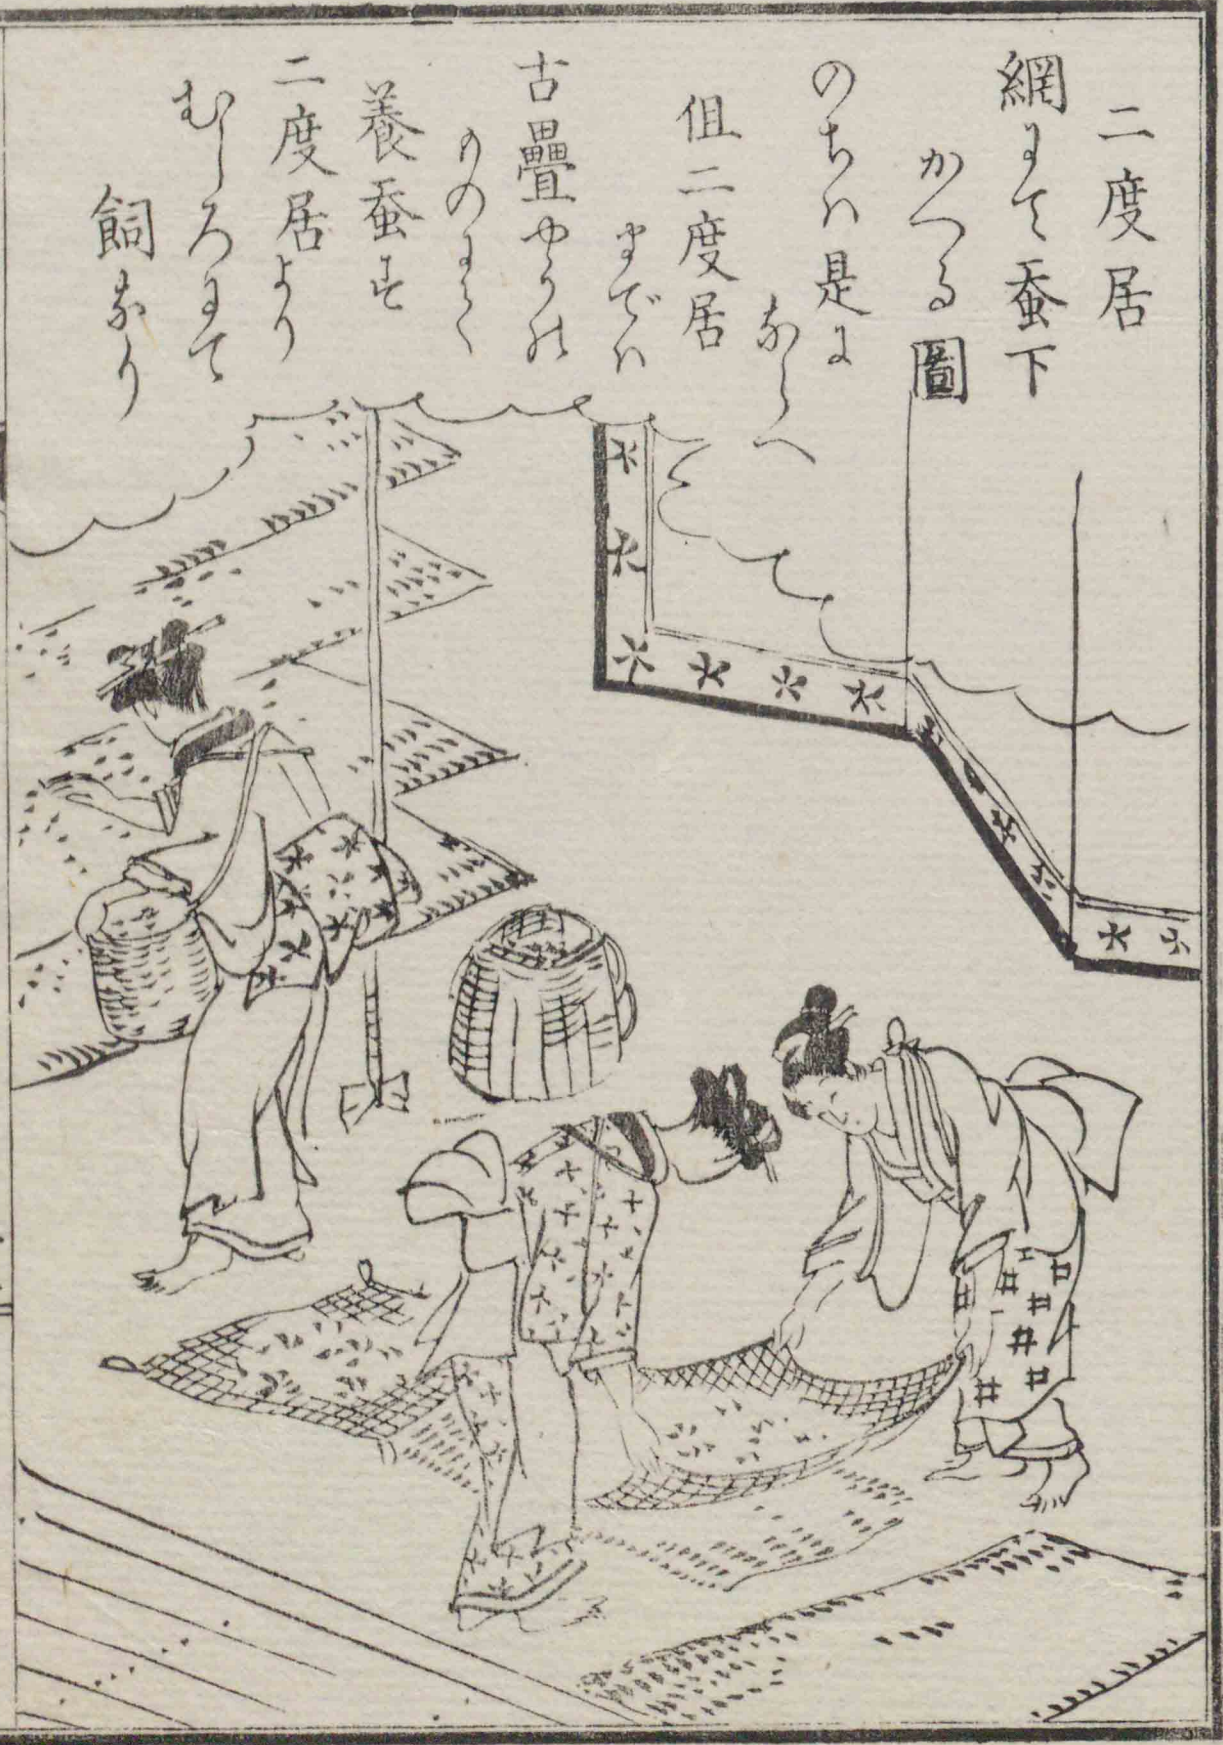 二度居
網にて蚕下
かへる圖
のちハ是に
ならへ
但二度居
までハ
古疊やうの
ものにて
養蚕す
二度居より
むしろにて
飼なり